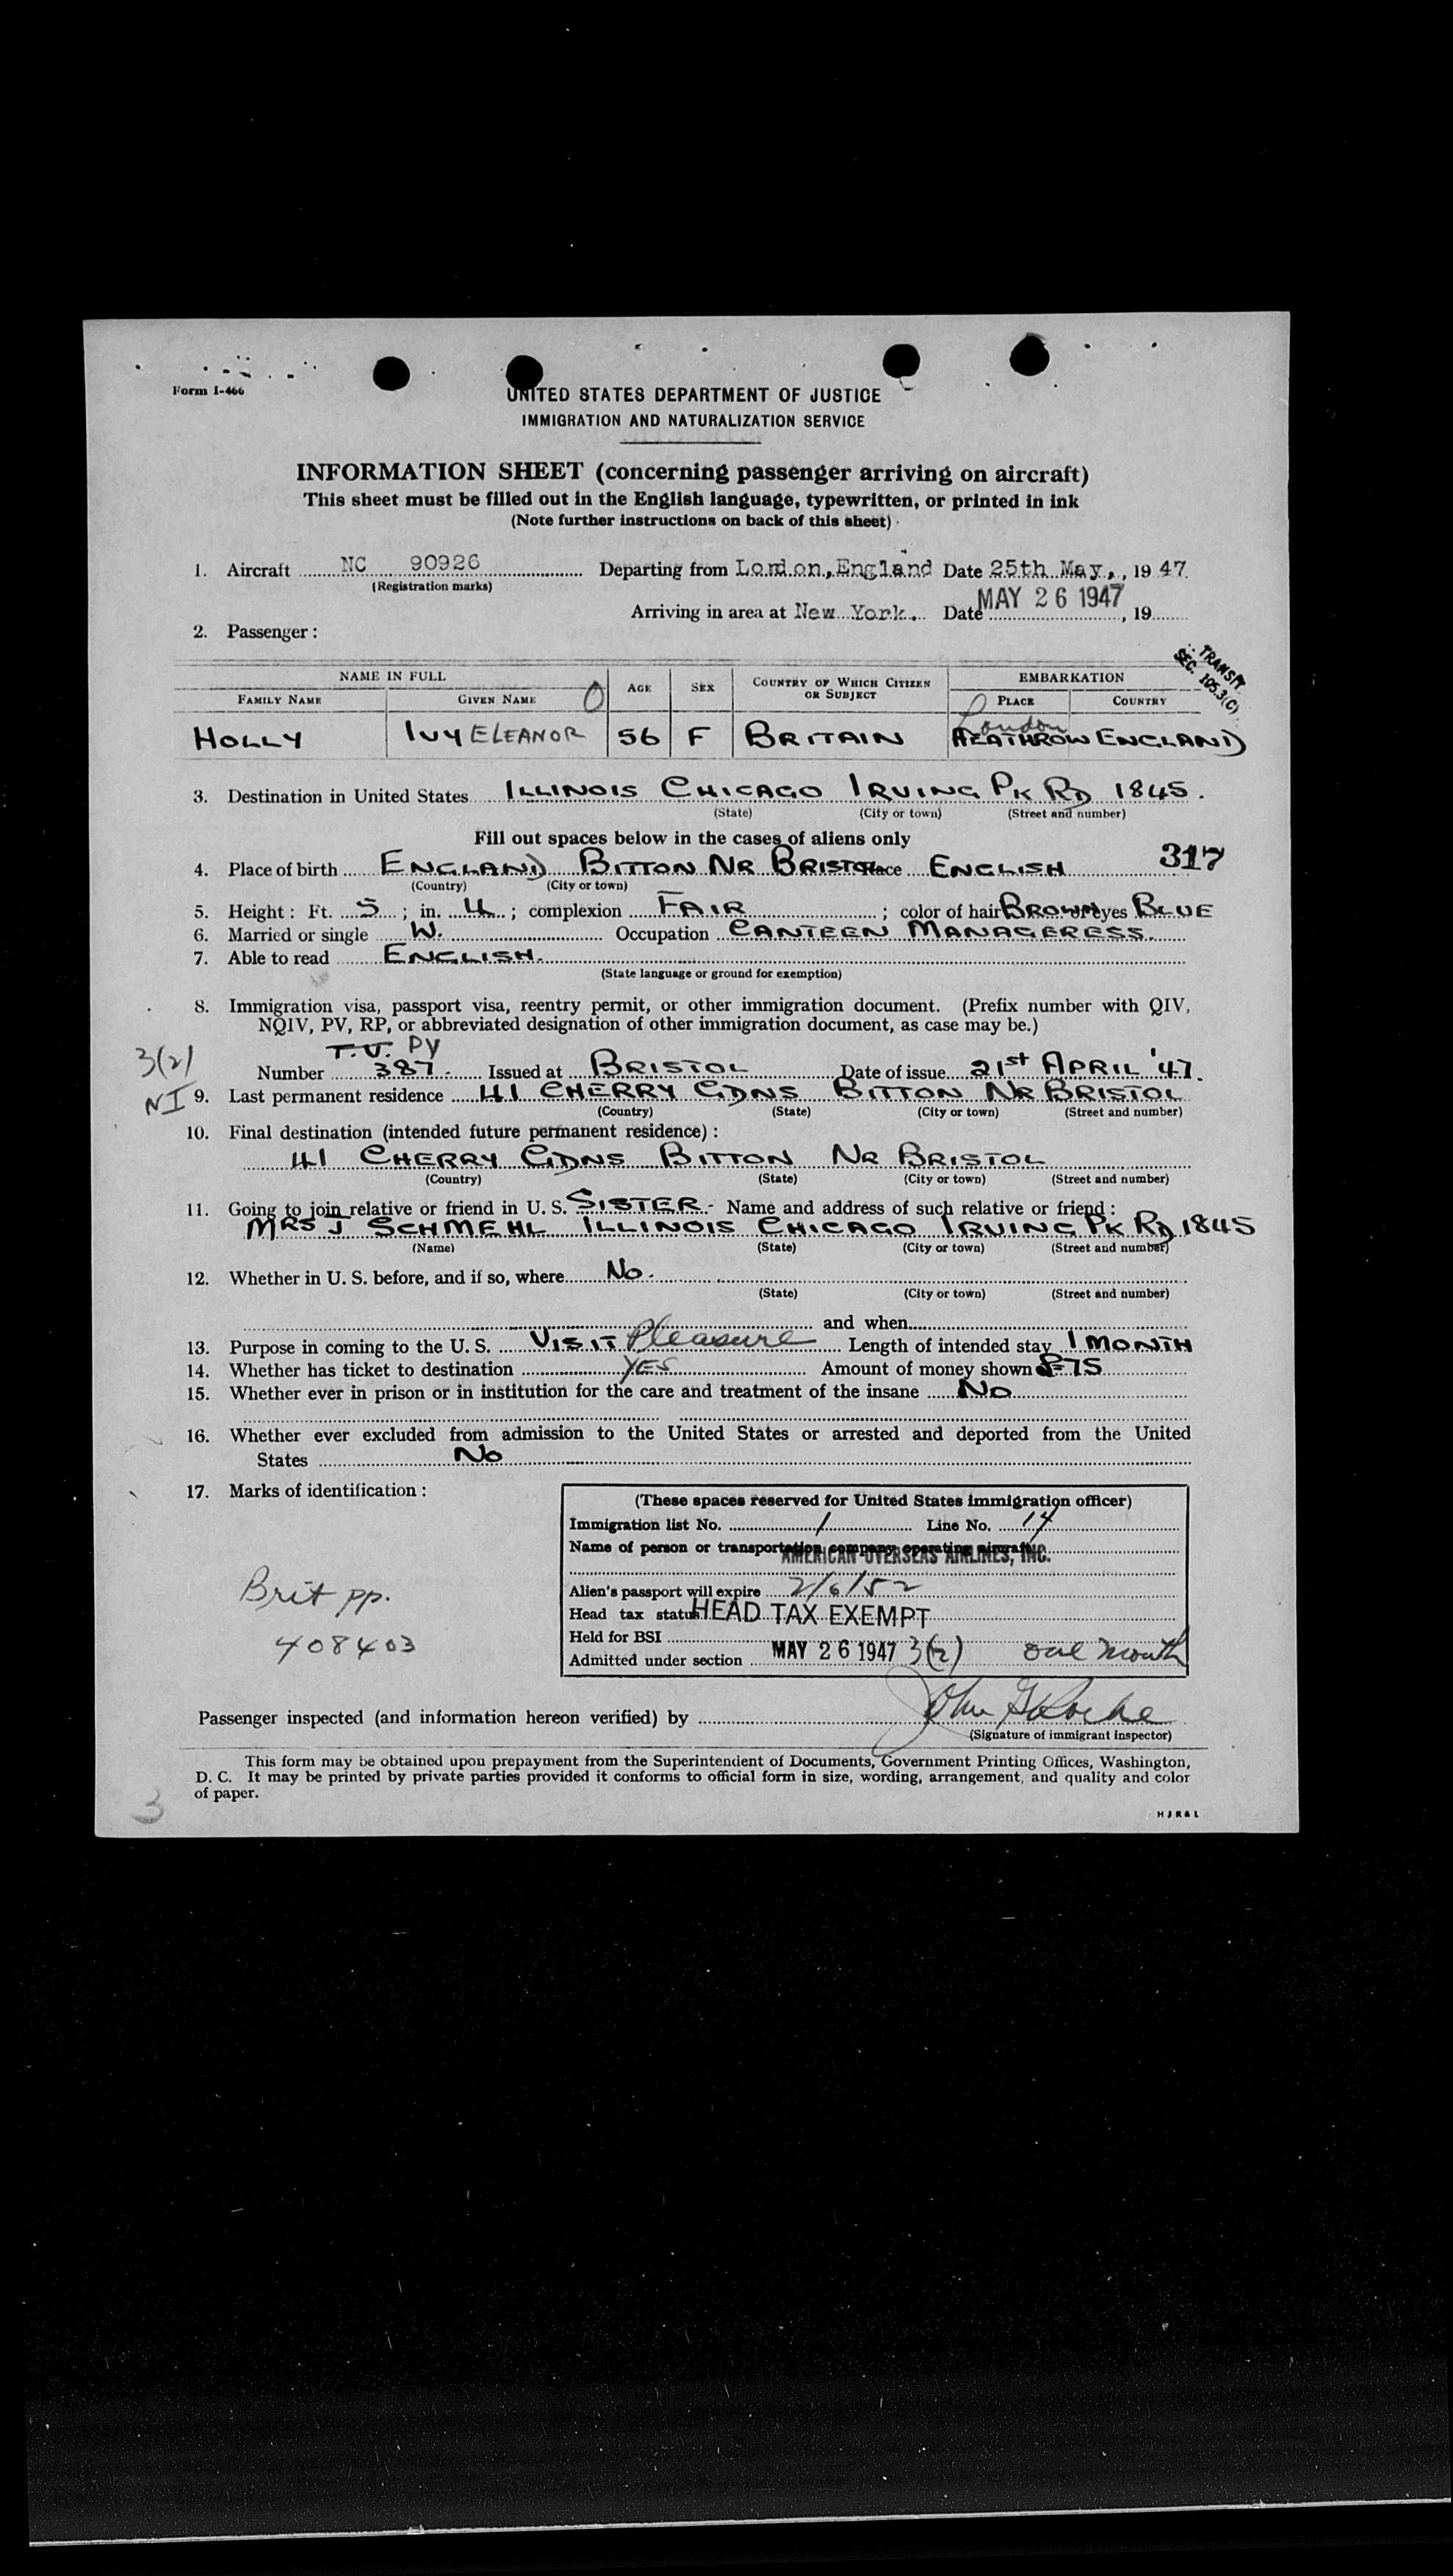 Form I-466
UNITED STATES DEPARTMENT OF JUSTICE
IMMIGRATION AND NATURALIZATION SERVICE
INFORMATION SHEET (concerning passenger arriving on aircraft)
This sheet must be filled out in the English language, typewritten, or printed in ink
(Note further instructions on back of this sheet)
1. Aircraft NC 90926 Departing from London, England Date 25th May, , 19 47
(Registration marks)
Arriving in area at New York. Date MAY 26 1947, 19
2. Passenger :
TRANSIT
SEC. 105.3(C)
NAME IN FULL AGE SEX COUNTRY OF WHICH CITIZEN OR SUBJECT EMBARKATION
FAMILY NAME GIVEN NAME PLACE COUNTRY
London
HOLLY IVY ELEANOR 56 F BRITAIN HEATHROW ENGLAND
3. Destination in United States ILLINOIS CHICAGO IRVING PK RD 1845.
(State) (City or town) (Street and number)
Fill out spaces below in the cases of aliens only
317
4. Place of birth ENGLAND BITTON NR BRISTOL Race ENGLISH
(Country) (City or town)
5. Height : Ft. 5 ; in. 4 ; complexion FAIR ; color of hair BROWN of eyes BLUE
6. Married or single W. Occupation CANTEEN MANAGERESS.
7. Able to read ENGLISH.
(State language or ground for exemption)
8. Immigration visa, passport visa, reentry permit, or other immigration document. (Prefix number with QIV,
NQIV, PV, RP, or abbreviated designation of other immigration document, as case may be.)
T.V. PV
3(2)
Number 387 Issued at BRISTOL Date of issue 21st APRIL '47.
NI
9. Last permanent residence 41 CHERRY GDNS BITTON NR BRISTOL
(Country) (State) (City or town) (Street and number)
10. Final destination (intended future permanent residence) :
41 CHERRY GDNS BITTON NR BRISTOL
(Country) (State) (City or town) (Street and number)
11. Going to join relative or friend in U. S. SISTER - Name and address of such relative or friend :
MRS J SCHMEHL ILLINOIS CHICAGO IRVING PK RD 1845
(Name) (State) (City or town) (Street and number)
12. Whether in U. S. before, and if so, where No.
(State) (City or town) (Street and number)
and when
13. Purpose in coming to the U. S. VISIT Pleasure Length of intended stay 1 MONTH
14. Whether has ticket to destination YES Amount of money shown 75
15. Whether ever in prison or in institution for the care and treatment of the insane No
16. Whether ever excluded from admission to the United States or arrested and deported from the United
States No
17. Marks of identification :
(These spaces reserved for United States immigration officer)
Immigration list No. 1 Line No. 14
Name of person or transportation company operating aircraft AMERICAN OVERSEAS AIRLINES, INC.
Alien's passport will expire 2/6/52
Head tax status HEAD TAX EXEMPT
Held for BSI
Admitted under section MAY 26 1947 3(2) one month
Brit pp.
408403
Passenger inspected (and information hereon verified) by John
(Signature of immigrant inspector)
This form may be obtained upon prepayment from the Superintendent of Documents, Government Printing Offices, Washington,
D. C. It may be printed by private parties provided it conforms to official form in size, wording, arrangement, and quality and color
of paper.
3
H J R & L